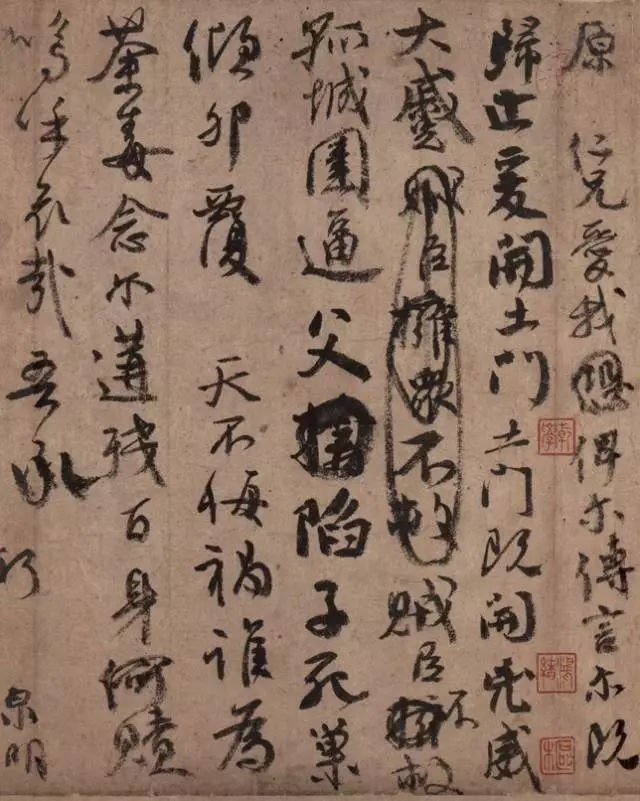 原 仁兄愛我俾尔傳言尔既
歸止爰開土門土門既開兇威
大蹙賊臣擁衆不救賊臣不擁救
孤城圍逼父擒陷子死巢
傾卵覆 天不悔禍誰為
荼毒念尔遘殘百身何贖
嗚乎哀哉吾承
泉明